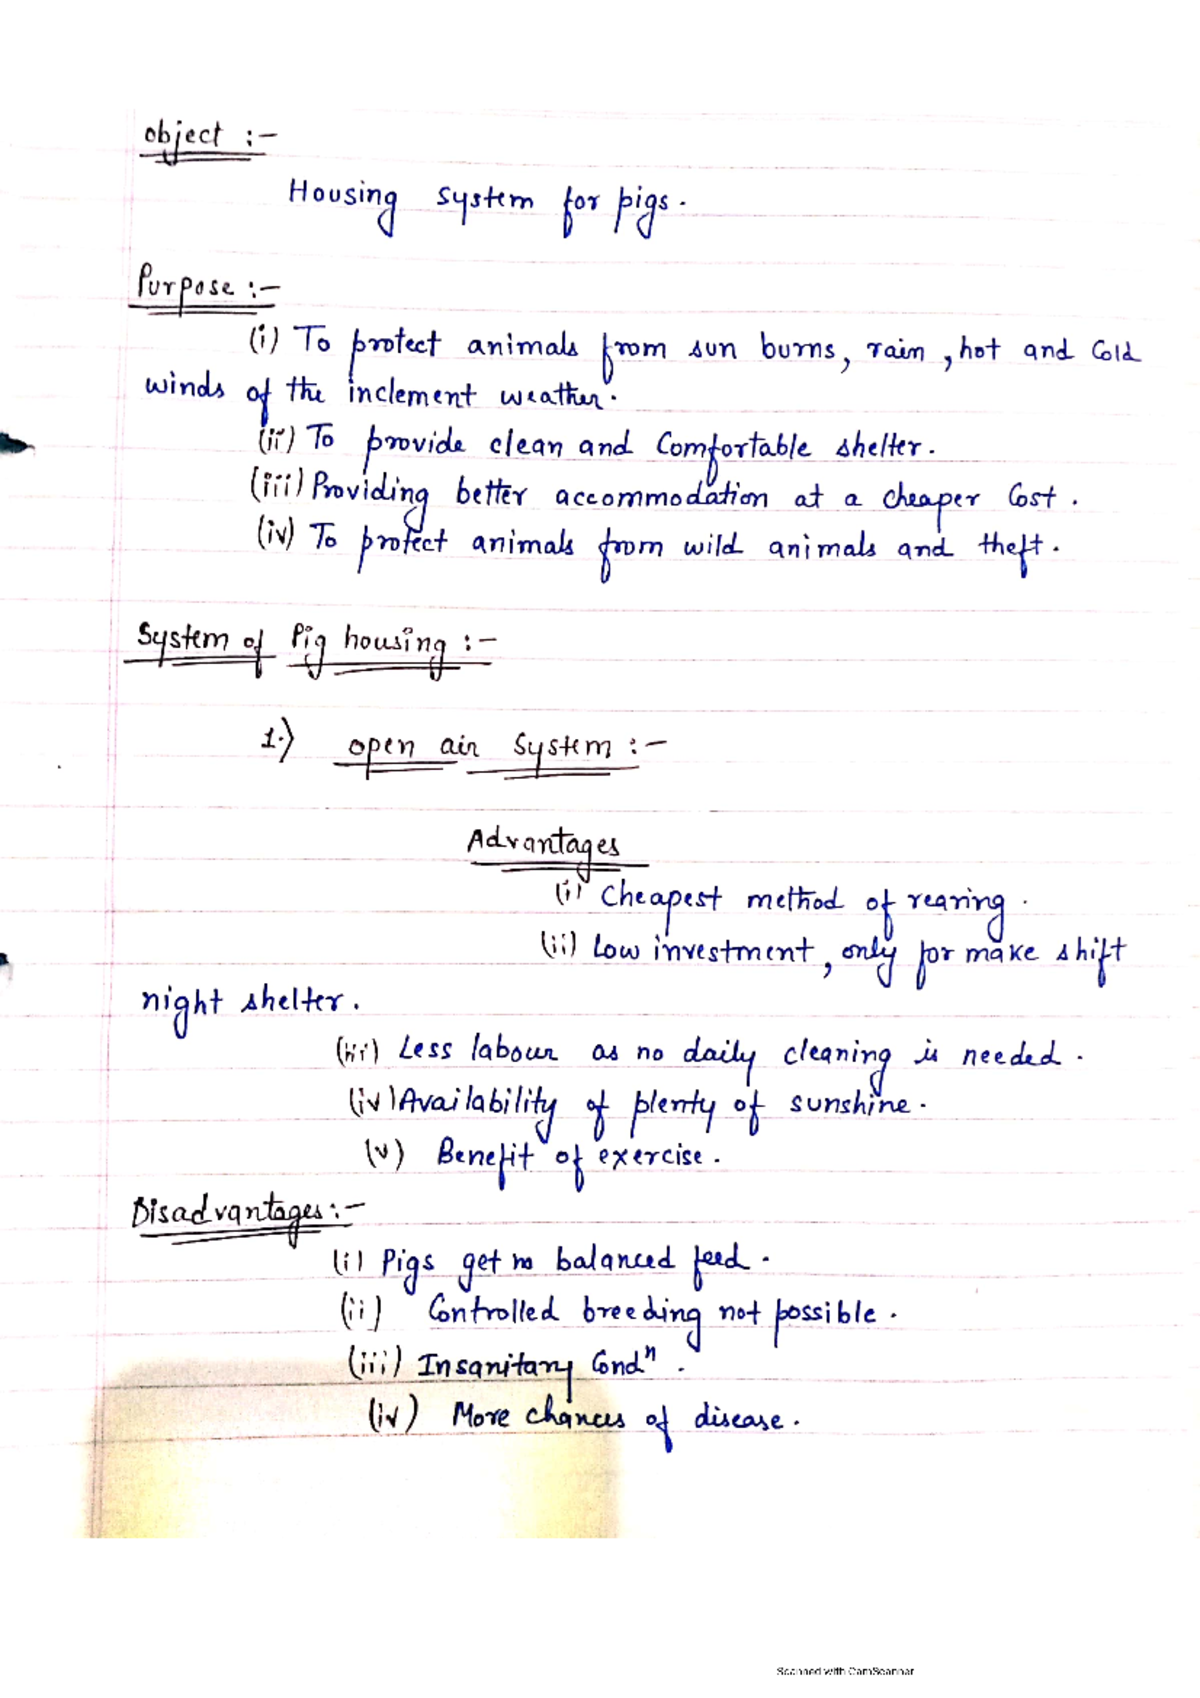 object :-
Housing system for pigs.
Purpose :-
(i) To protect animals from sun burns, rain, hot and Cold
winds of the inclement weather.
(ii) To provide clean and Comfortable shelter.
(iii) Providing better accommodation at a cheaper Cost.
(iv) To protect animals from wild animals and theft.
System of Pig housing :-
1.) open air System :-
Advantages
(i) Cheapest method of rearing.
(ii) Low investment, only for make shift
night shelter.
(iii) Less labour as no daily cleaning is needed.
(iv) Availability of plenty of sunshine.
(v) Benefit of exercise.
Disadvantages :-
(i) Pigs get no balanced feed.
(ii) Controlled breeding not possible.
(iii) Insanitary Condⁿ.
(iv) More chances of disease.
Scanned with CamScanner